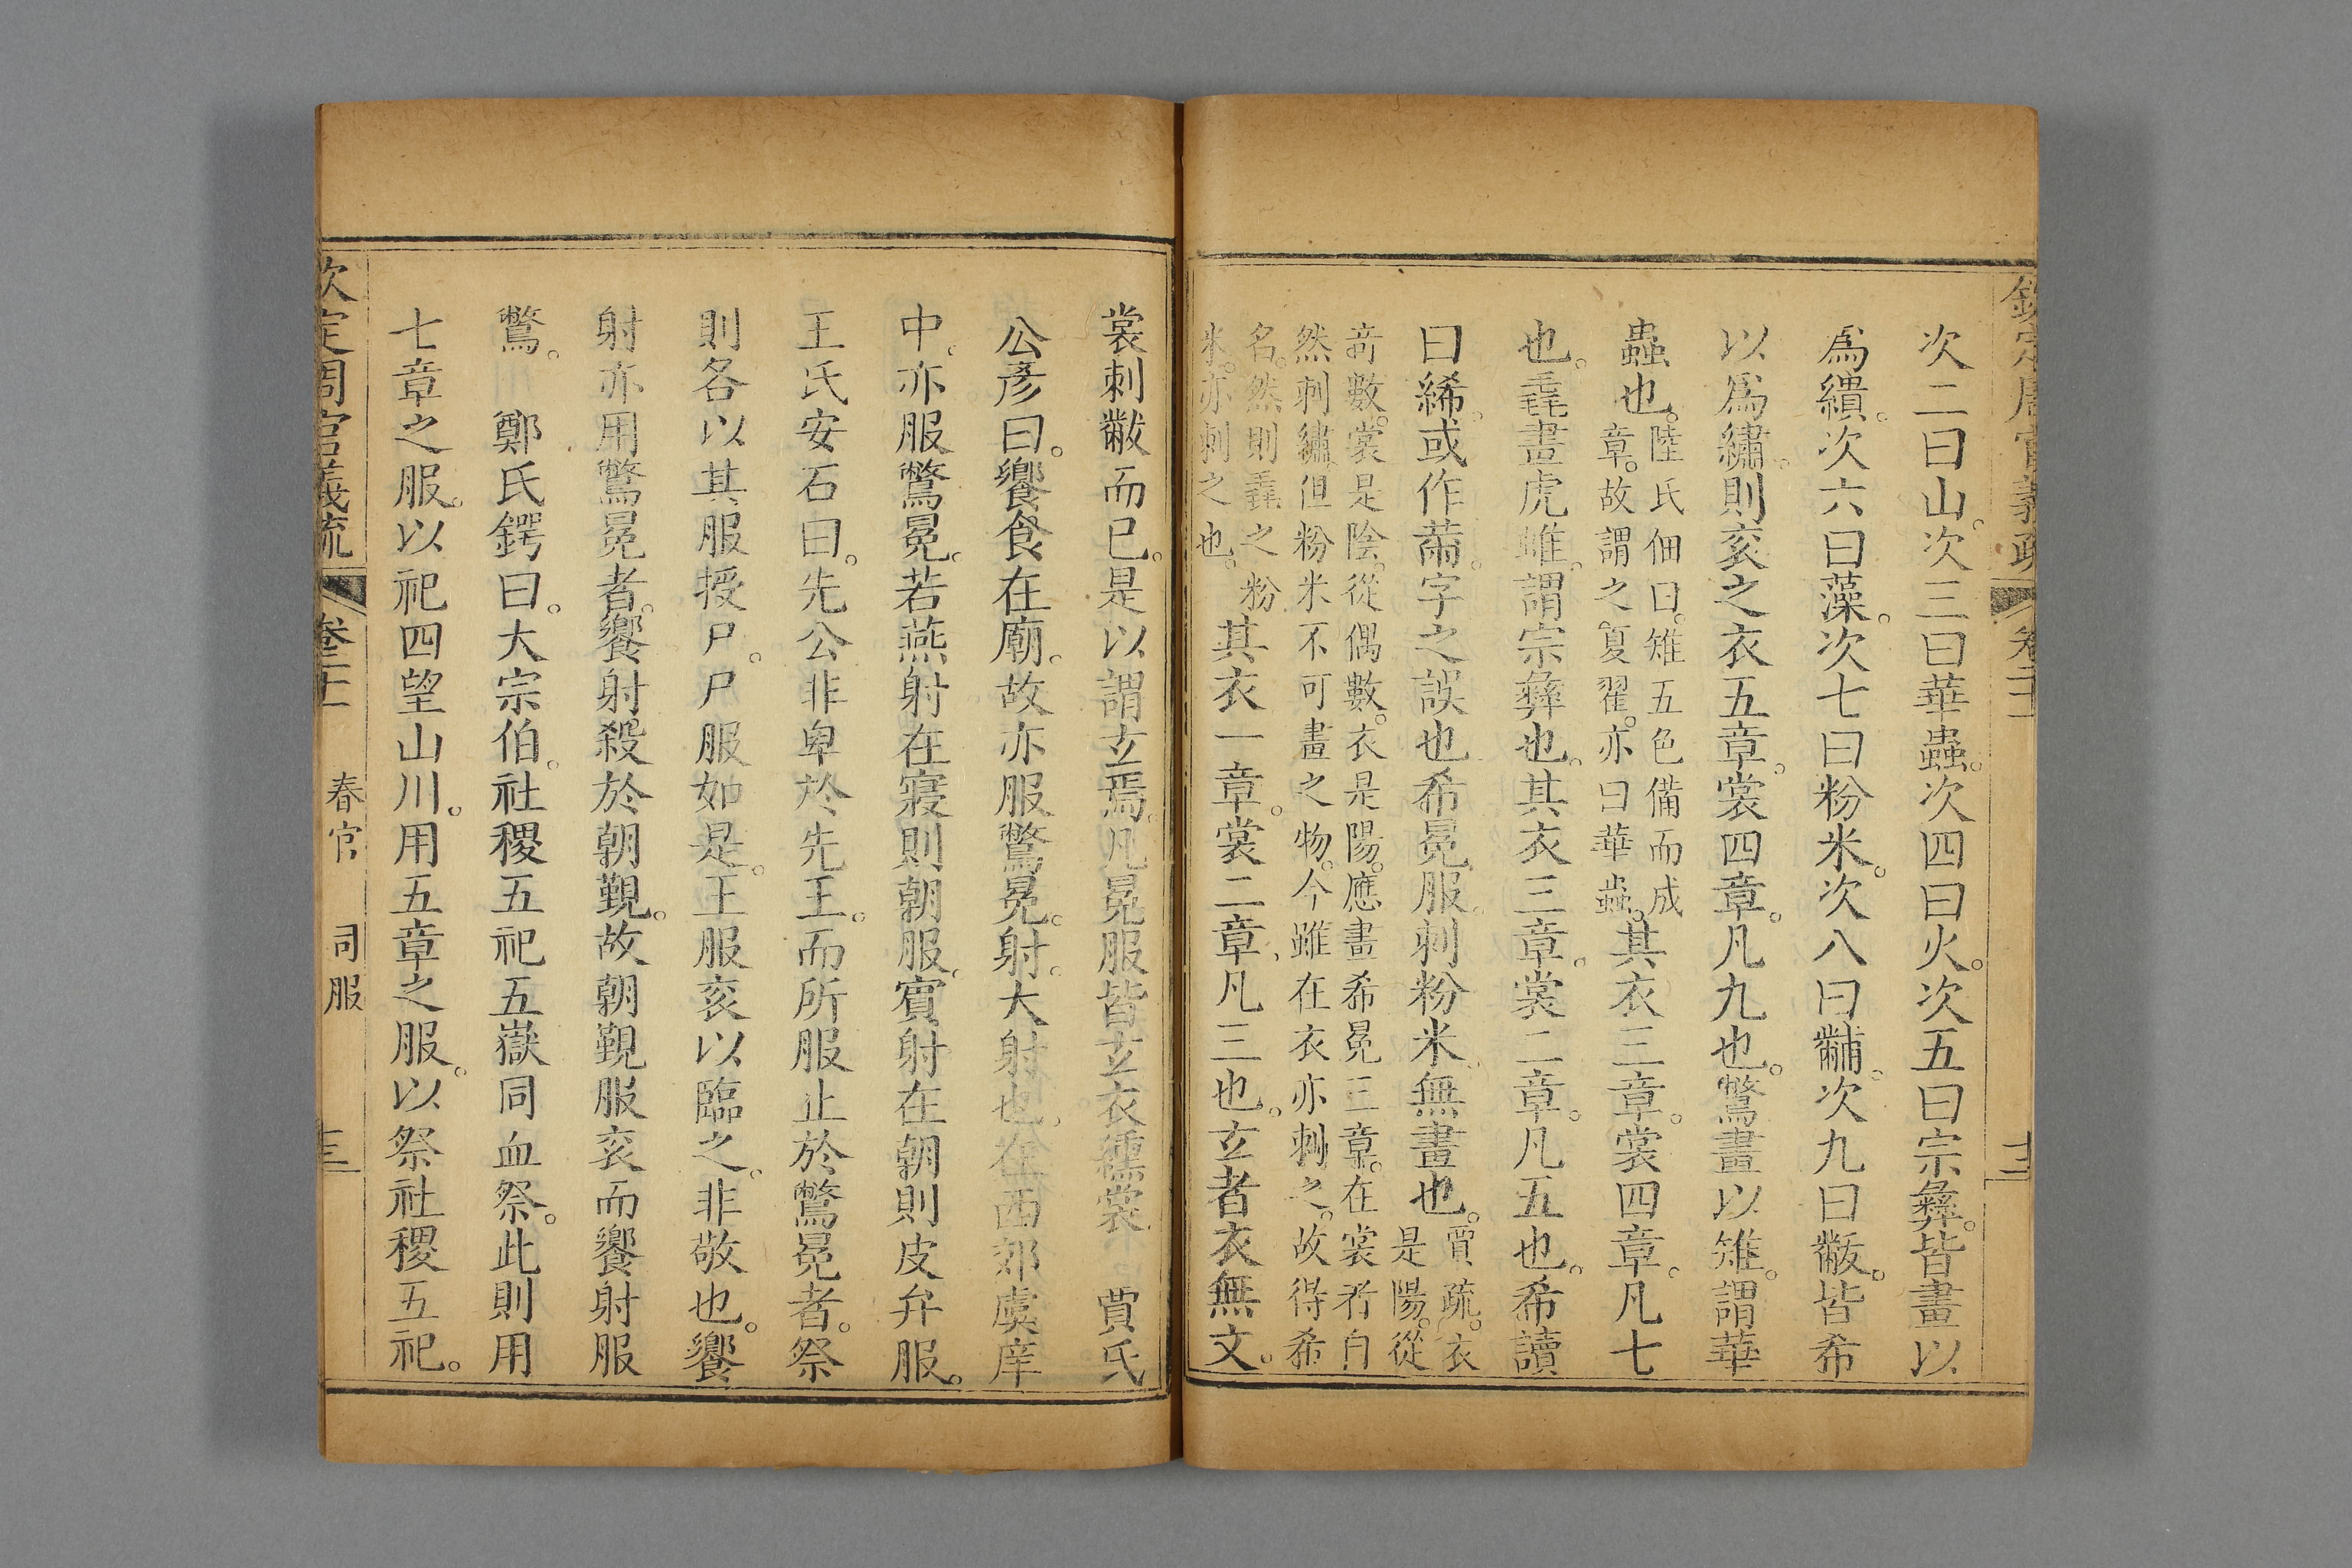 欽定周官義疏 卷二十一
次二曰山。次三曰華蟲。次四曰火。次五曰宗彝。皆畫以
爲繢。次六曰藻。次七曰粉米。次八曰黼。次九曰黻。皆希
以爲繡。則衮之衣五章。裳四章。凡九也。鷩畫以雉。謂華
蟲也。陸氏佃曰。雉五色備而成
章。故謂之夏翟。亦曰華蟲。其衣三章。裳四章。凡七
也。毳畫虎蜼。謂宗彝也。其衣三章。裳二章。凡五也。希讀
曰絺。或作黹。字之誤也。希冕服。刺粉米。無畫也。賈疏。衣
是陽。從
奇數。裳是陰。從偶數。衣是陽。應畫。希冕三章。在裳者自
然刺繡。但粉米不可畫之物。今雖在衣亦刺之。故得希
名。然則毳之粉
米。亦刺之也。其衣一章。裳二章。凡三也。玄者衣無文。
裳刺黻而已。是以謂玄焉。凡冕服皆玄衣纁裳 賈氏
公彥曰。饗食在廟。故亦服鷩冕。射。大射也。在西郊虞庠
中。亦服鷩冕。若燕射在寢則朝服。賓射在朝則皮弁服。
王氏安石曰。先公非卑於先王。而所服止於鷩冕者。祭
則各以其服授尸。尸服如是。王服衮以臨之。非敬也。饗
射亦用鷩冕者。饗射殺於朝覲。故朝覲服衮而饗射服
鷩。 鄭氏鍔曰。大宗伯。社稷五祀五嶽同血祭。此則用
七章之服。以祀四望山川。用五章之服。以祭社稷五祀。
欽定周官義疏 卷二十一 春官 司服